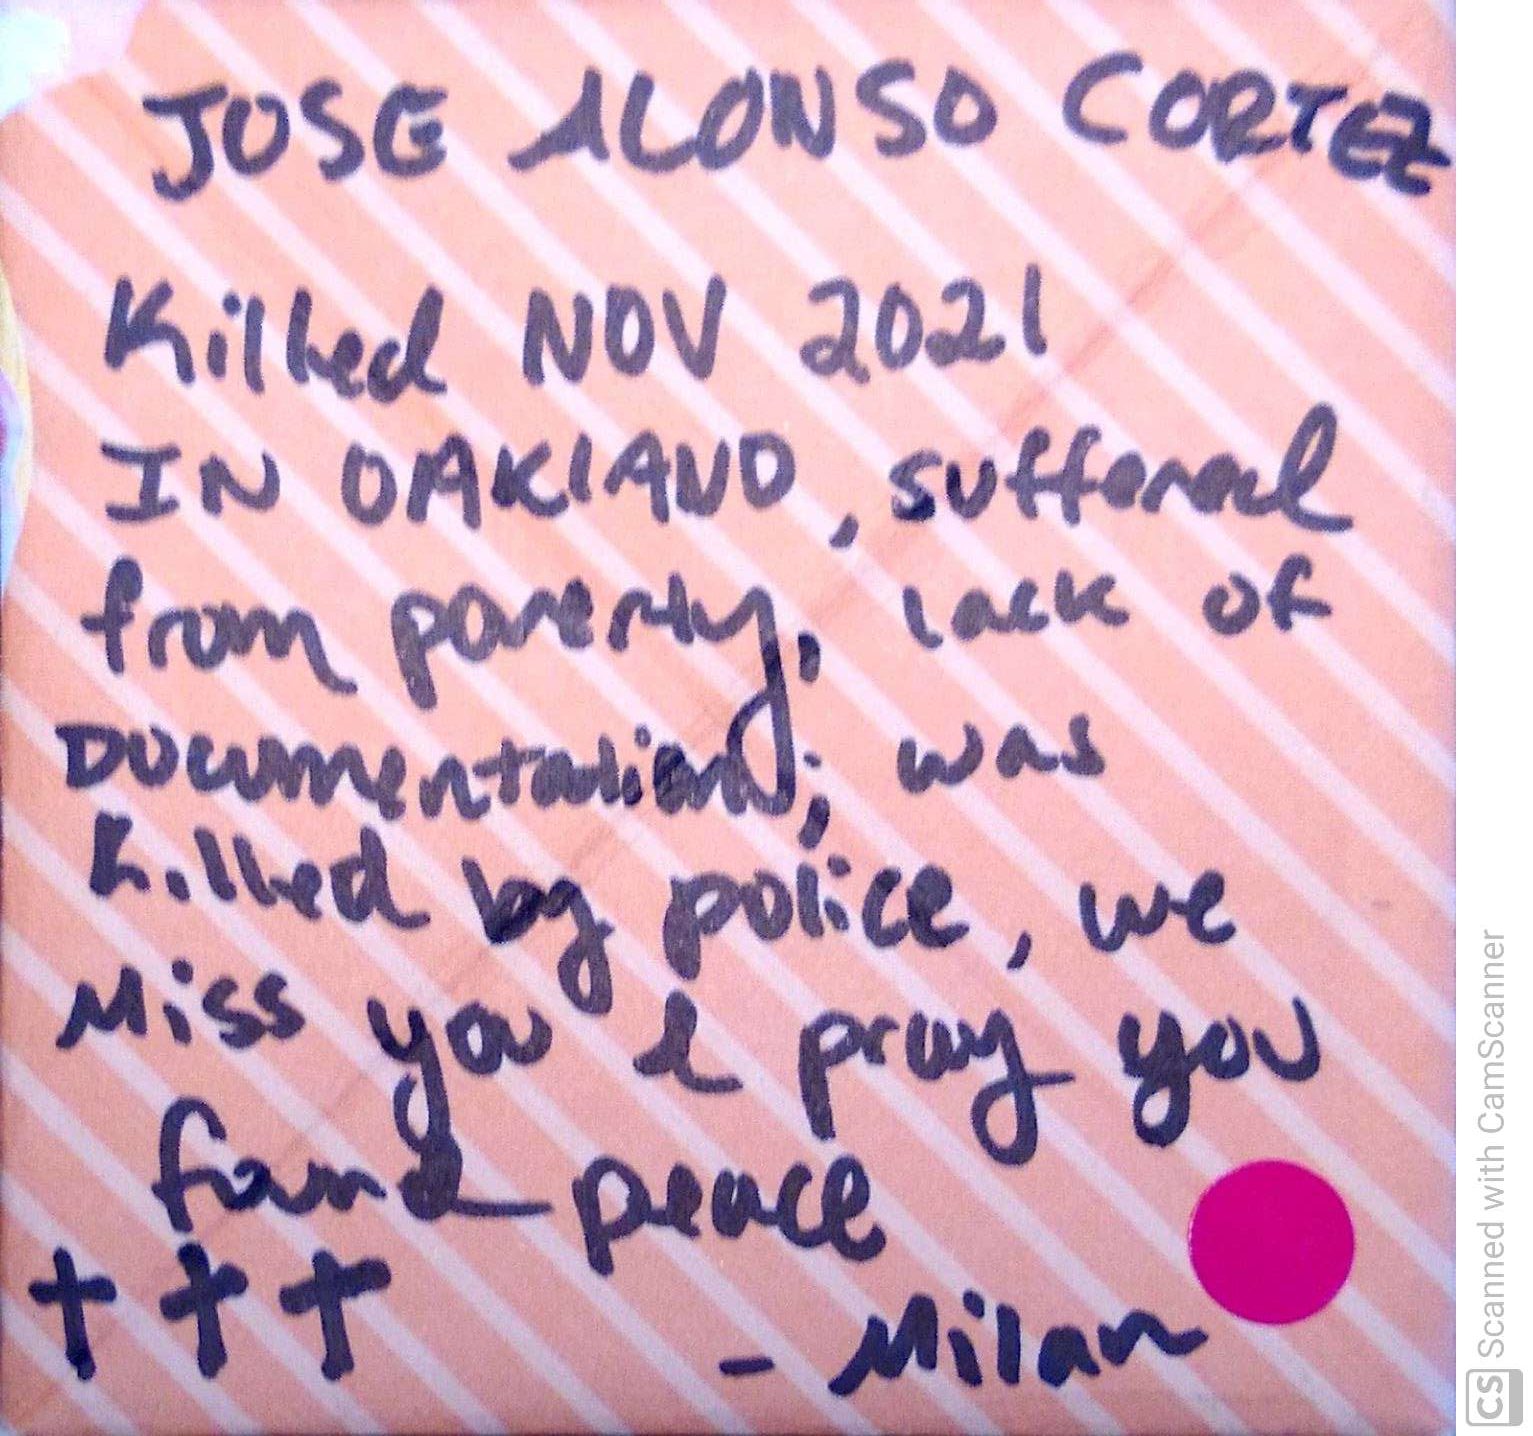 JOSE ALONSO CORTEZ
Killed NOV 2021
IN OAKLAND, suffered
from poverty, lack of
DOCUMENTATION; was
killed by police, we
Miss you & pray you
found peace
†††
- Milan
Scanned with CamScanner
CS